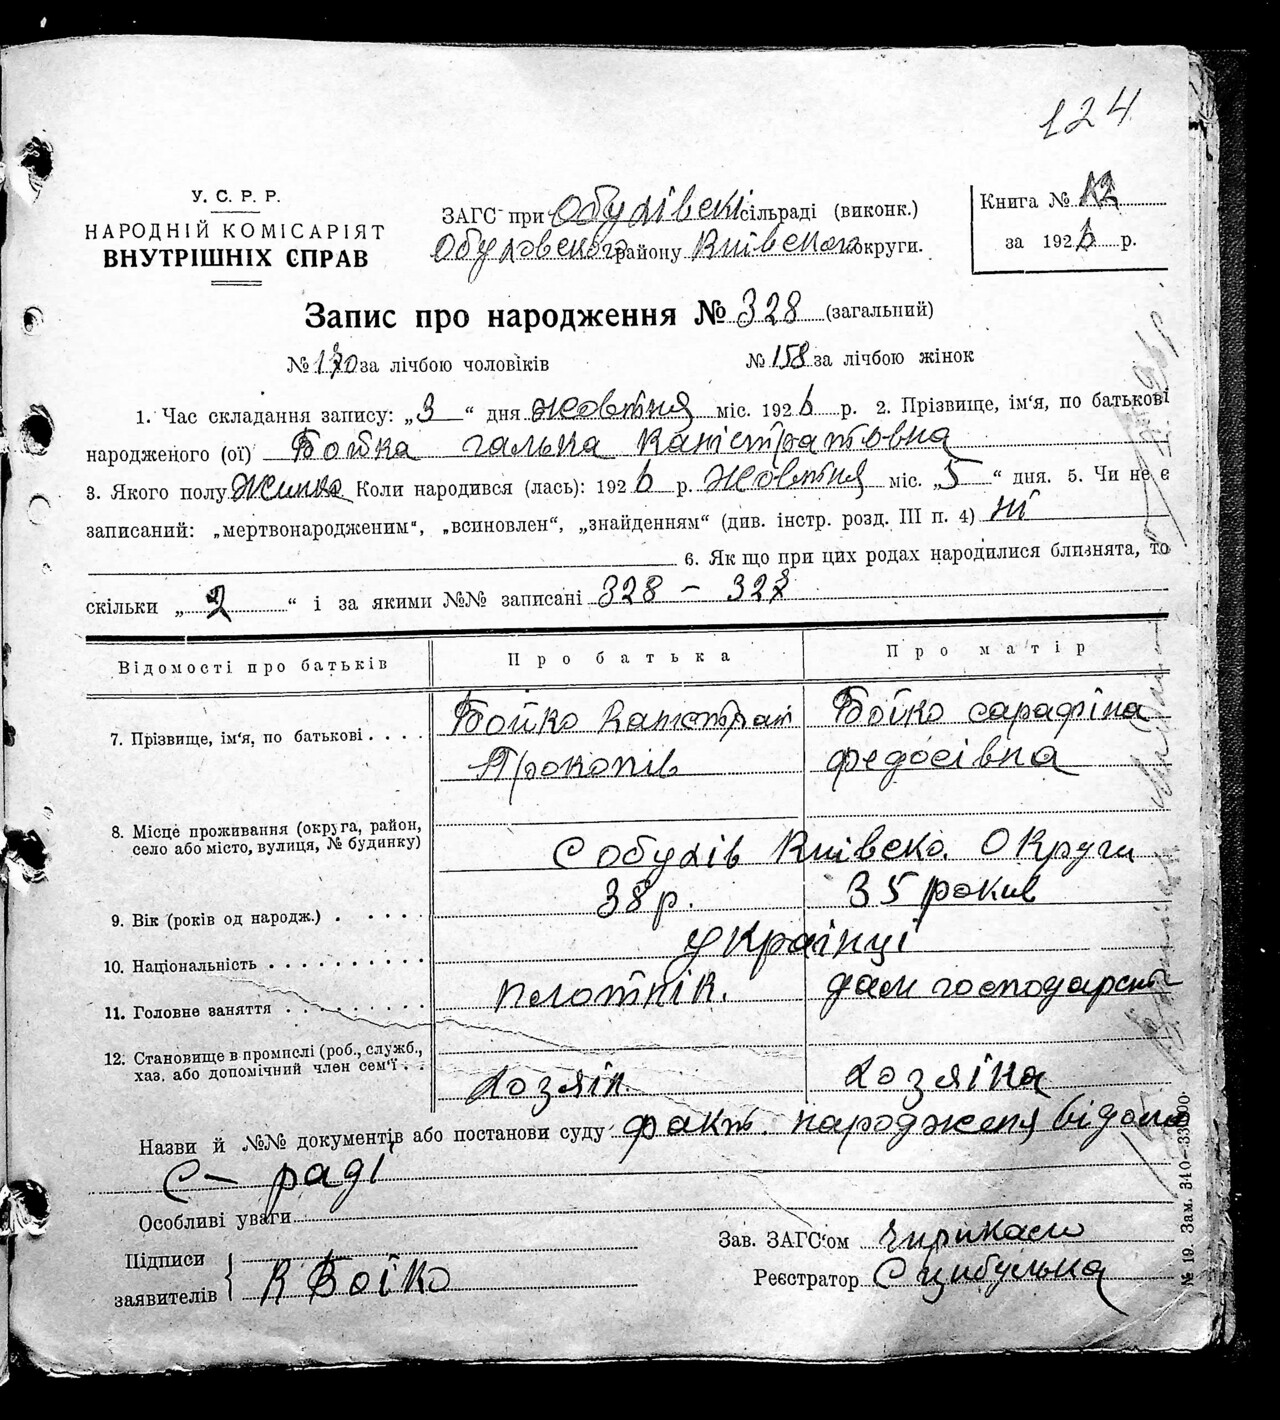 124
У. С. Р. Р.
НАРОДНІЙ КОМІСАРІЯТ
ВНУТРІШНІХ СПРАВ
ЗАГС при Обухівскі сільраді (виконк.)
Обуховского району Київского округи.
Книга № 12
за 1926 р.
Запис про народження № 328 (загальний)
№ 170 за лічбою чоловіків № 158 за лічбою жінок
1. Час складання запису: „3“ дня жовтня міс. 1926 р. 2. Прізвище, ім'я, по батькові
народженого (ої) Бойка галька Капістратовна
3. Якого полу Жинка Коли народився (лась): 1926 р. Жовтня міс. „5“ дня. 5. Чи не є
записаний: „мертвонародженим“, „всиновлен“, „знайденням“ (див. інстр. розд. III п. 4) ні
6. Як що при цих родах народилися близнята, то
скільки „2“ і за якими №№ записані 328 – 327
Відомості про батьків Про батька Про матір
7. Прізвище, ім'я, по батькові . . . . Бойко Капістрат Бойко сарафіна
Прокопів федосівна
8. Місце проживання (округа, район,
село або місто, вулиця, № будинку) С обухів Київско. Округи
9. Вік (років од народж.) . . . . . 38 р. 35 роков
10. Національність . . . . . . . . . . українці
11. Головне заняття . . . . . . . . плотнік. дом господарст
12. Становище в промислі (роб., служб.,
хаз. або допомічний член сем'ї . . хозяін хозяіка
Назви й №№ документів або постанови суду факт. народженя відомо
С – раді
Особливі уваги
Підписи
заявителів К Бойко
Зав. ЗАГС'ом
Реєстратор С Цибулька
№ 19. Зам. 340—33000